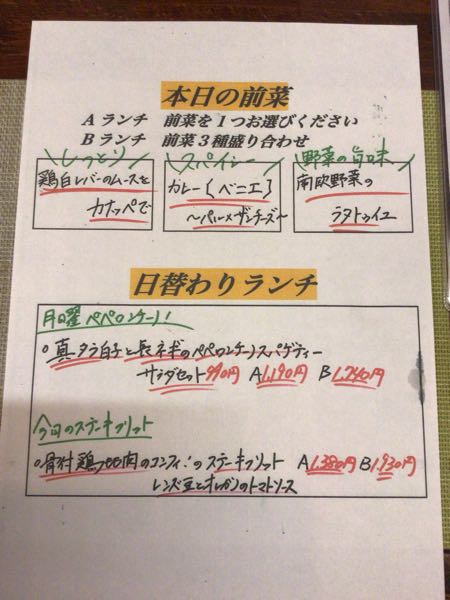 本日の前菜
Aランチ 前菜を1つお選びください
Bランチ 前菜3種盛り合わせ
しっとり
鶏白レバーのムースを
カナッペで
スパイシー
カレー〔ベニエ〕
〜パルメザンチーズ〜
野菜の旨味
南欧野菜の
ラタトゥイユ
日替わりランチ
月曜ペペロンチーノ!
○真タラ白子と長ネギのペペロンチーノスパゲティー
サラダセット990円 A1,190円 B1,740円
今日のステーキフリット
○骨付鶏モモ肉のコンフィのステーキフリット A1,380円 B1,930円
レンズ豆とオレガノのトマトソース